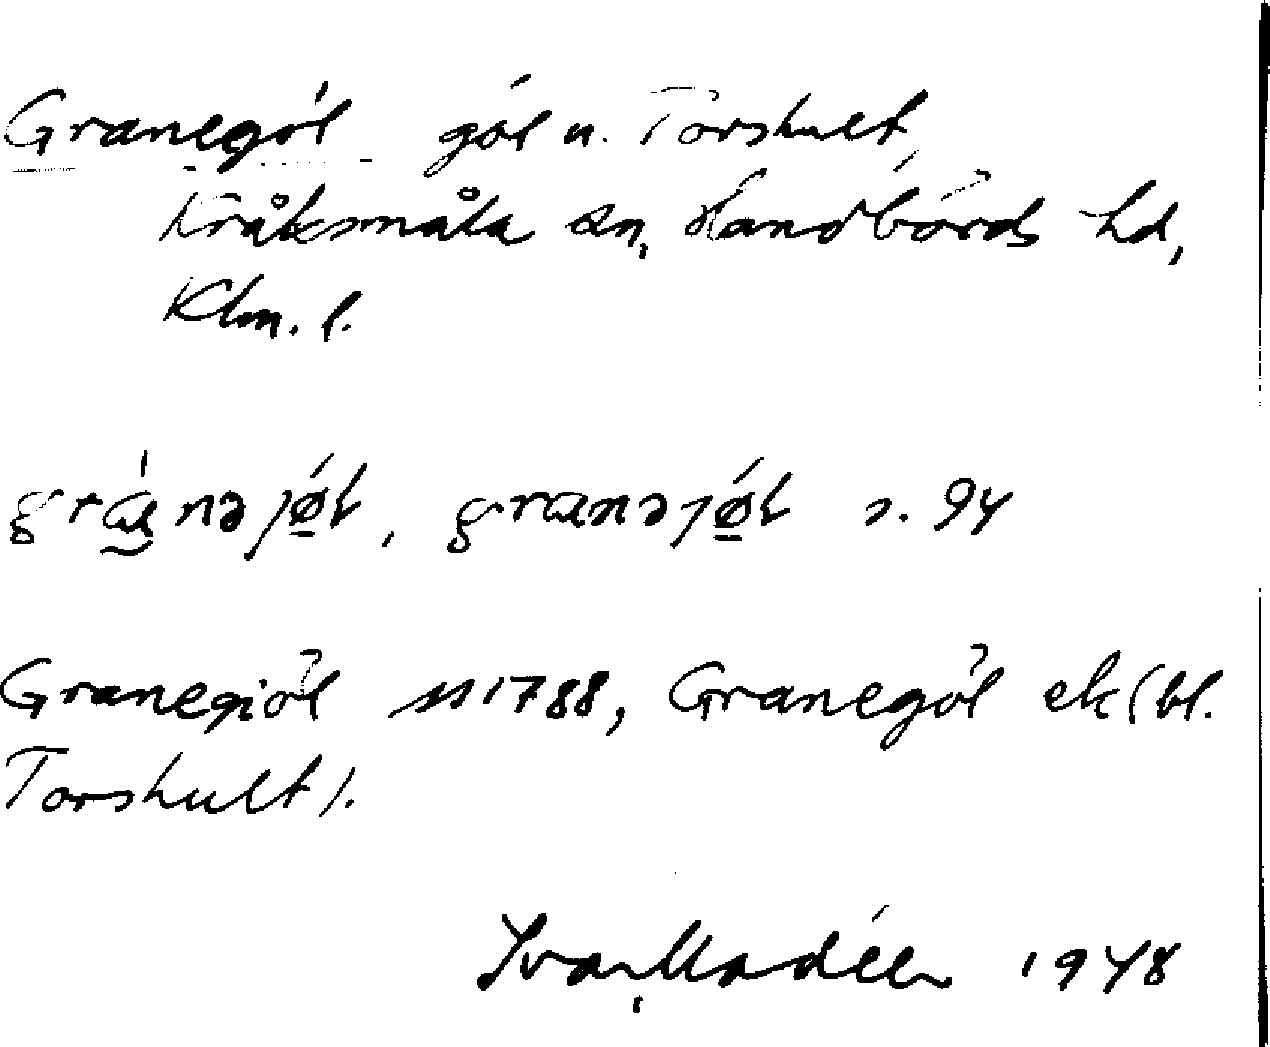 Granegöl göl n. Torshult,
Kråksmåla sn, Handbörds hd,
Klm. l.
grɑ́nəjø̀l, grɑnəjø̀l s. 94
Granegiöl 1788, Granegöl ek (bl.
Torshult).
Ivar Modéer 1948